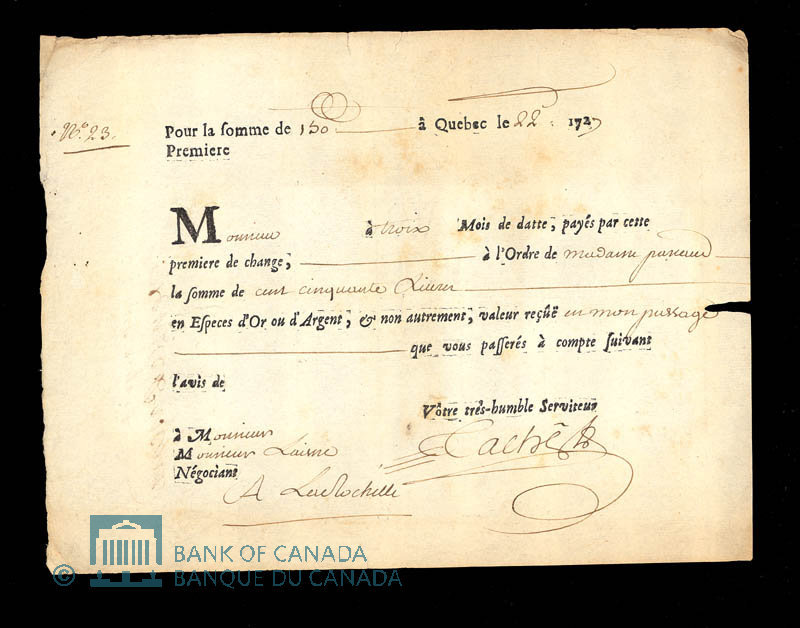 No. 23.
Pour la somme de 150 à Quebec le 22 . 1727
Premiere
Monsieur à trois Mois de datte, payés par cette
premiere de change, à l'Ordre de madame
la somme de cent cinquante Livres
en Especes d'Or ou d'Argent; & non autrement, valeur reçûë en mon passage
que vous passerés à compte suivant
l'avis de
Vôtre très-humble Serviteur
à Monsieur
Monsieur
Négociant
A LaRochelle
© BANK OF CANADA
BANQUE DU CANADA